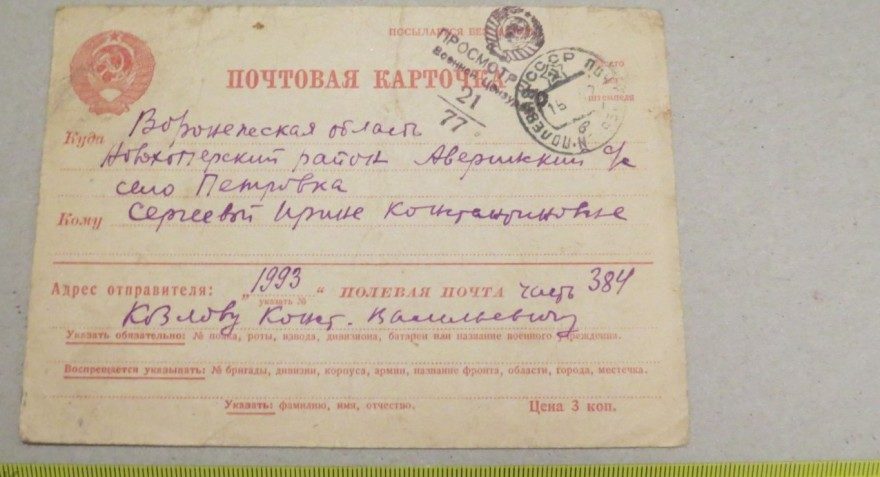 ПОСЫЛАЕТСЯ БЕЗ
ПРОСМОТРЕНО
Военной Цензурой
21
77
СССР
ПОЧТОВАЯ КАРТОЧКА
Куда Воронежская область
Новохоперский район Аверинский с/с
село Петровка
Кому Сергеевой Ирине Константиновне
Адрес отправителя: „1993" ПОЛЕВАЯ ПОЧТА часть 384
указать №
Козлову Конст. Васильевичу
Указать обязательно: № полка, роты, взвода, дивизиона, батареи или название военного учреждения.
Воспрещается указывать: № бригады, дивизии, корпуса, армии, название фронта, области, города, местечка.
Указать: фамилию, имя, отчество.
Цена 3 коп.